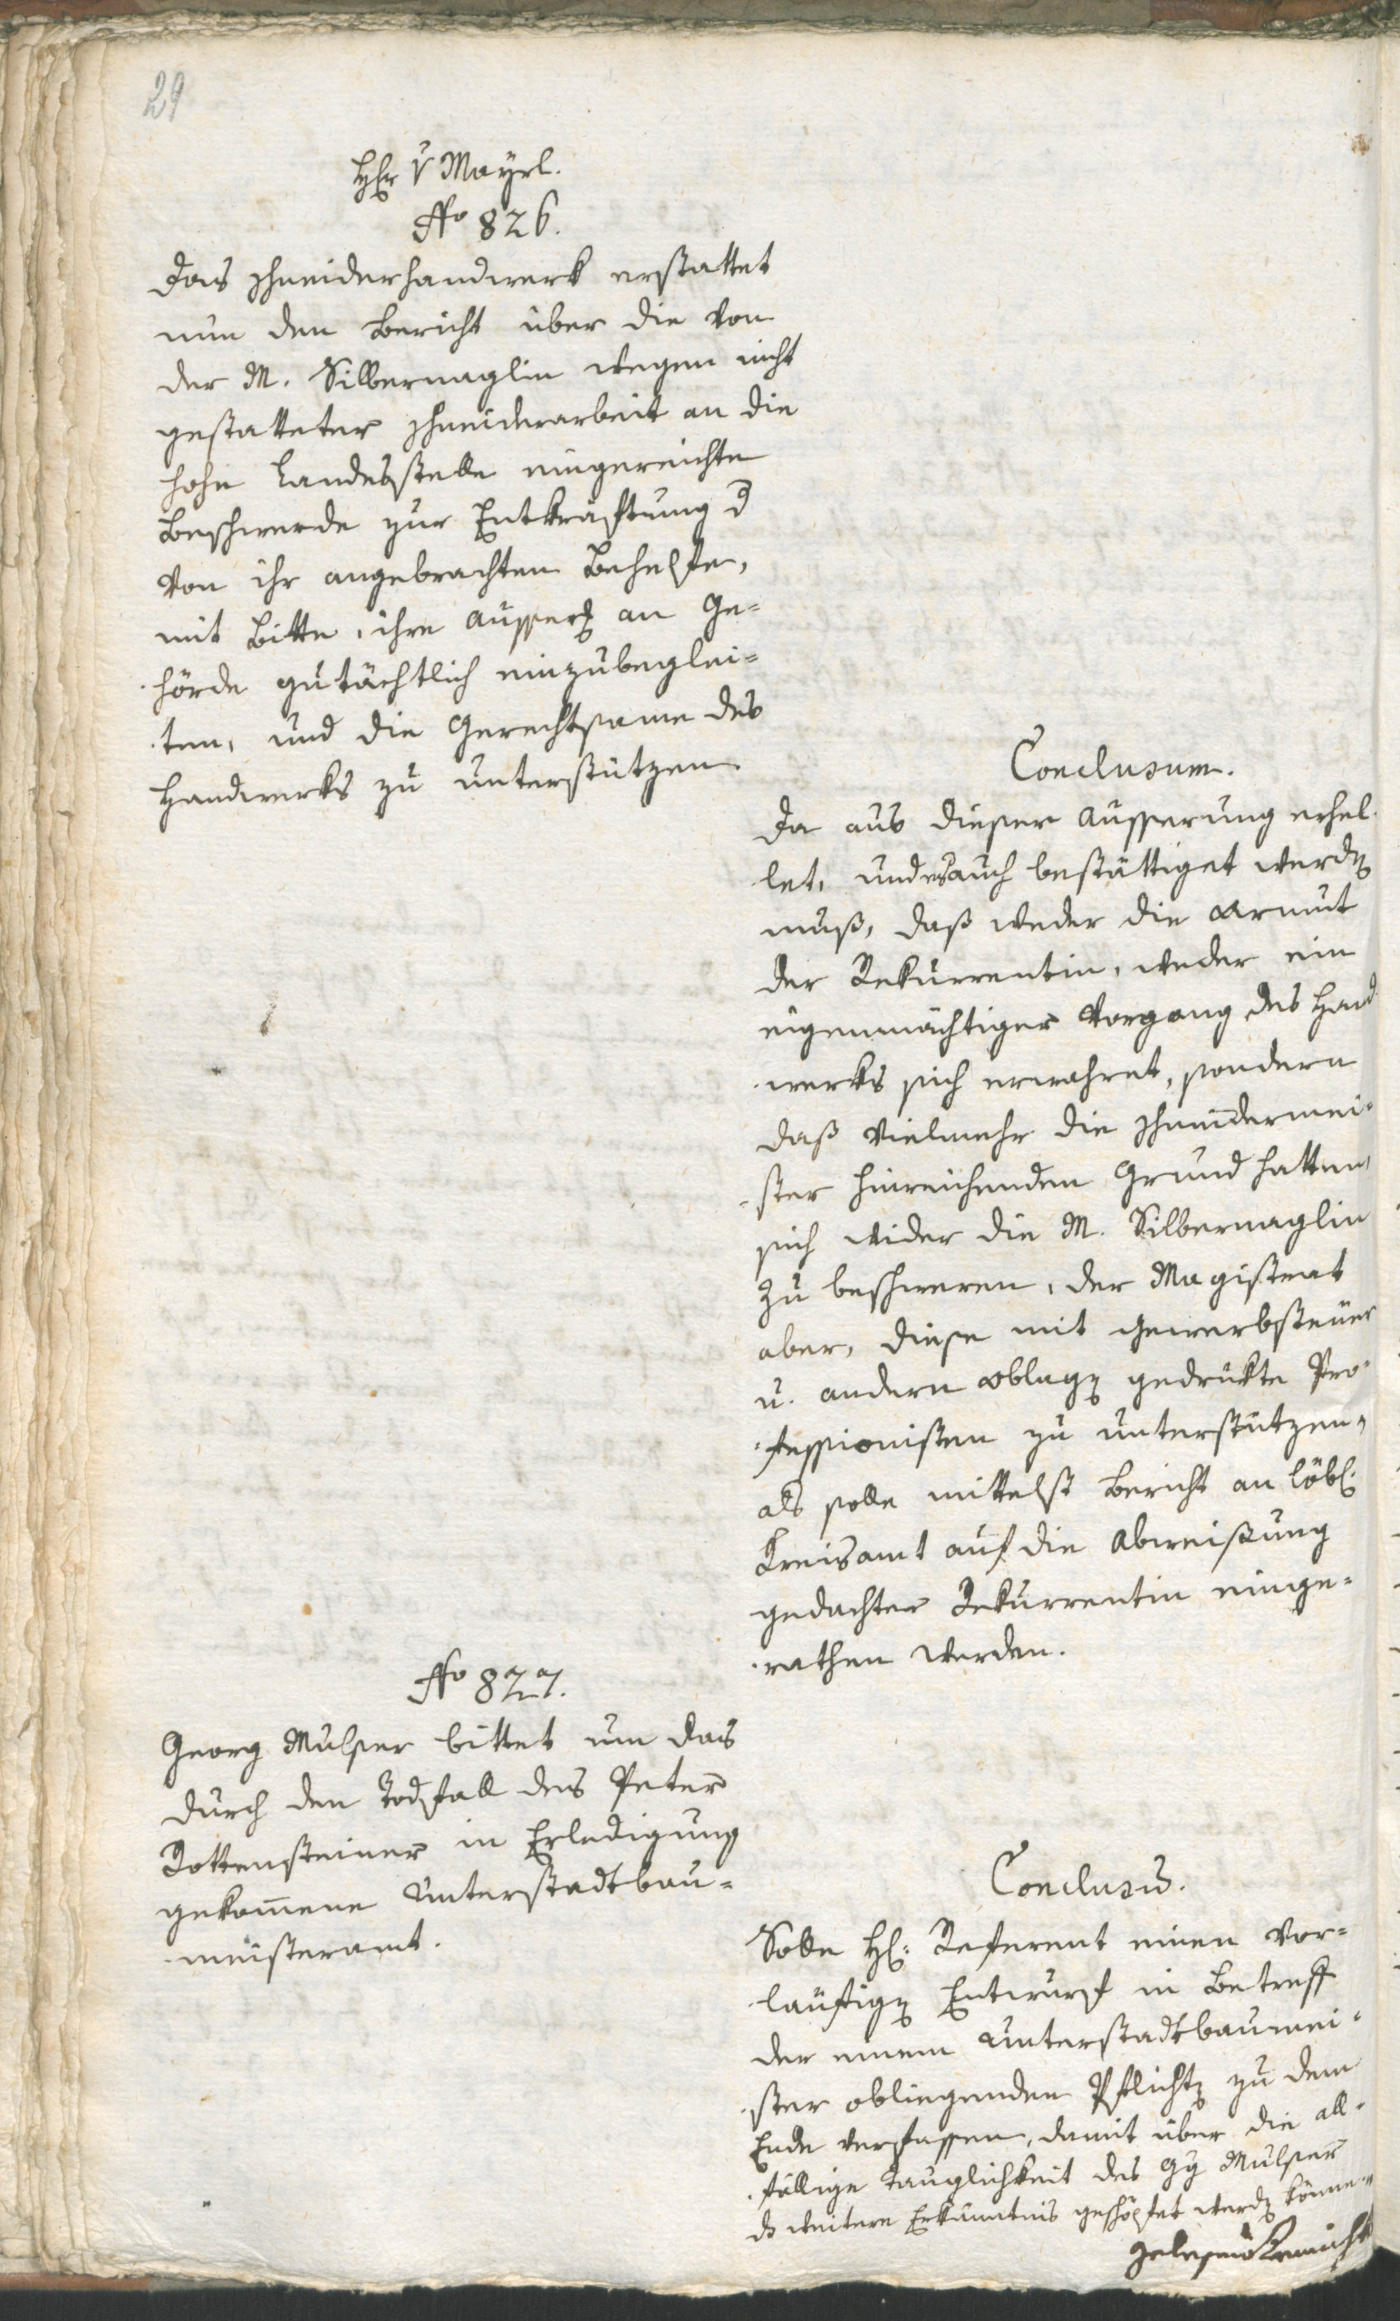 29
H[err] v Mayrl.
No 826.
Das Schneiderhandwerk erstattet
nun den Bericht über die von
der M. Silbernaglin wegen nicht
gestatteter Schneiderarbeit an die
hohe Landesstelle eingereichte
Beschwerde zur Entkräftung d
von ihr angebrachten Behelfe,
mit Bitte, ihre Äusser[ung] an Ge=
hörde gutächtlich einzubeglei=
ten, und die Gerechtsame des
Handwerks zu unterstützen
Conclusum.
Da aus dieser Äusserung erhel=
let, und es auch bestättiget werden
muß, daß weder die Armut
der Rekurrentin, weder ein
eigenmächtiger Vorgang des Hand
werks sich erwahret, sondern
daß vielmehr die Schneidermei=
ster hinreichenden Grund hatten,
sich wider die M. Silbernaglin
zu beschweren, der Magistrat
aber, diese mit Gewerbsteuer
u. andern Oblagen gedrükte Pro=
fessionisten zu unterstützen,
als solle mittelst Bericht an löbl.
Kreisamt auf die Abweisung
gedachter Rekurrentin einge=
rathen werden.
No 827.
Georg Mulser bittet um das
durch den Todfall des Peter
Rottensteiner in Erledigung
gekommene Unterstadtbau=
meisteramt.
Conclusu.
Solle H: Referent einen vor=
läufigen Entwurf in Betreff
der einem Unterstadtbaumei=
ster obliegenden Pflichten zu dem
Ende verfassen, damit über die all=
fällige Tauglichkeit des Gg Mulser
ds weitere Erkanntnis geschöpfet werden könne